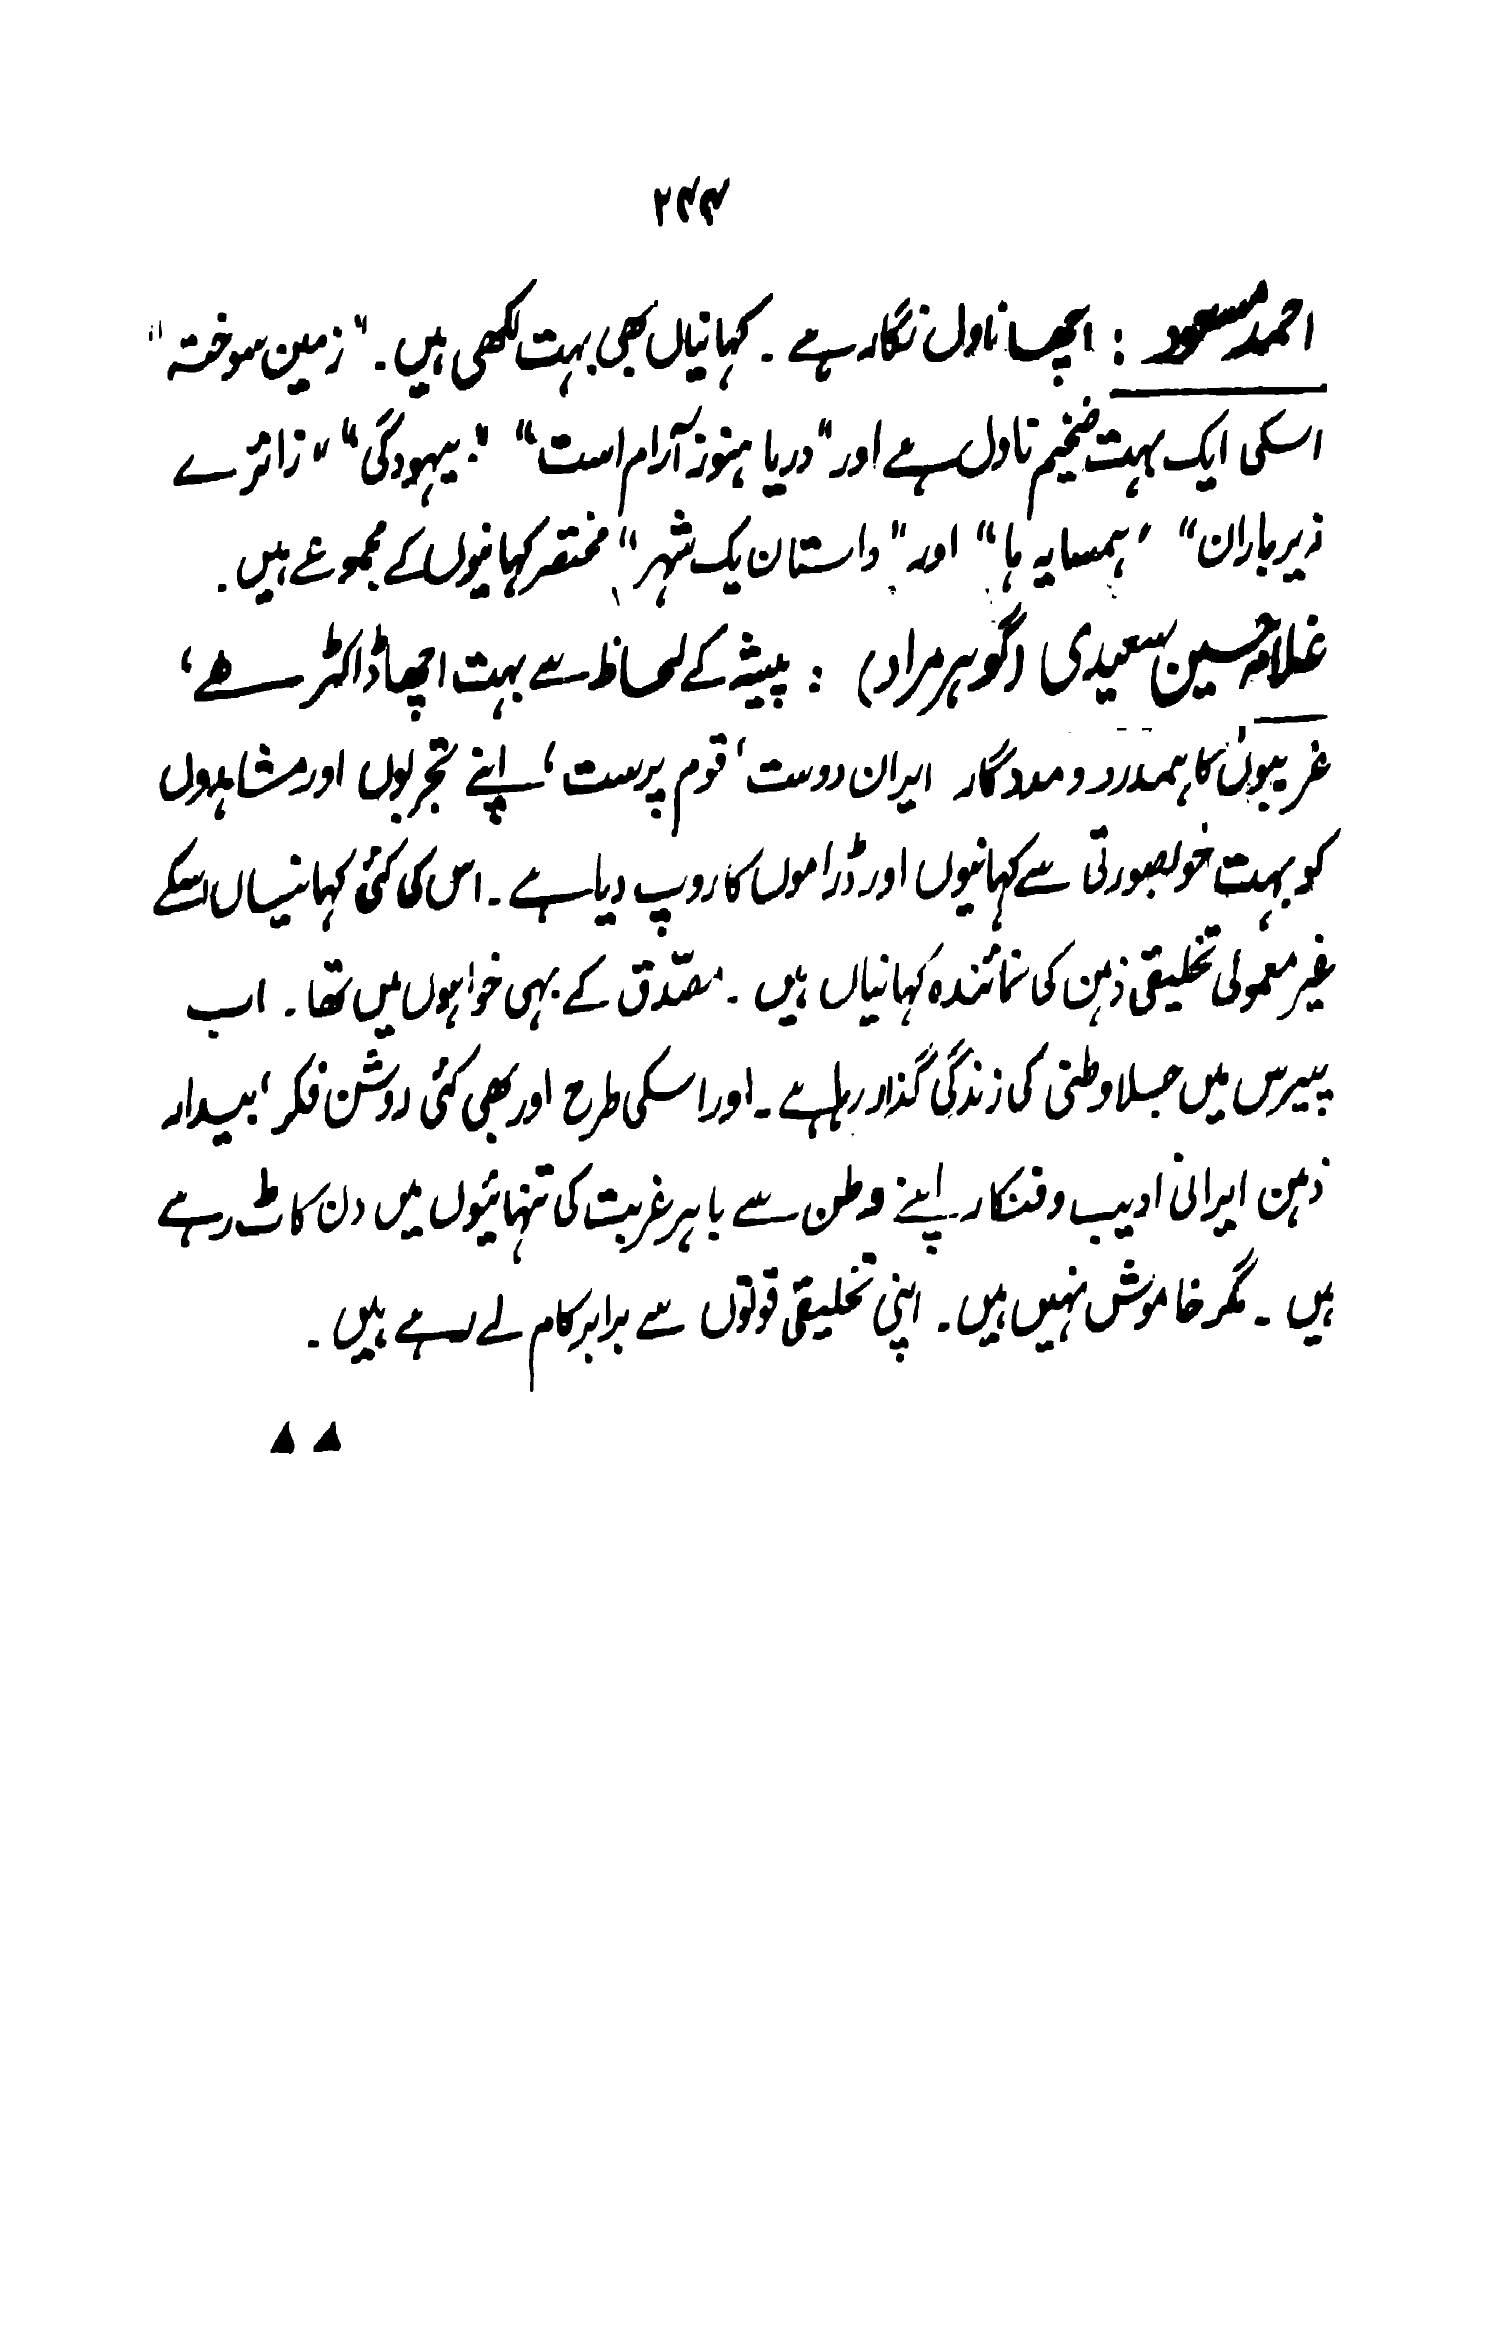 ۲۴۴
احمد مسعود : اچھا ناول نگار ہے ۔ کہانیاں بھی بہت لکھی ہیں ۔ "زمین سوختہ"
اسکی ایک بہت ضخیم ناول ہے اور "دریا ہنوز آرام است" "بیہودگی" "زائرے
زیر باران" ’ہمسایہ ہا" اور "داستان یک شہر" مختصر کہانیوں کے مجموعے ہیں ۔
غلام حسین سعیدی (گوہر مراد) : پیشہ کے لحاظ سے بہت اچھا ڈاکٹر ہے ،
غریبوں کا ہمدرد و مددگار ایران دوست ، قوم پرست ، اپنے تجربوں اور مشاہدوں
کو بہت خوبصورتی سے کہانیوں اور ڈراموں کا روپ دیا ہے ۔ اس کی کئی کہانیاں اسکے
غیر معمولی تخلیقی ذہن کی نمائندہ کہانیاں ہیں ۔ مصدّق کے بہی خواہوں میں تھا ۔ اب
پیرس میں جلاوطنی کی زندگی گذار رہا ہے ۔ اور اسکی طرح اور بھی کئی روشن فکر ، بیدار
ذہن ایرانی ادیب و فنکار اپنے وطن سے باہر غربت کی تنہائیوں میں دن کاٹ رہے
ہیں ۔ مگر خاموش نہیں ہیں ۔ اپنی تخلیقی قوتوں سے برابر کام لے رہے ہیں ۔